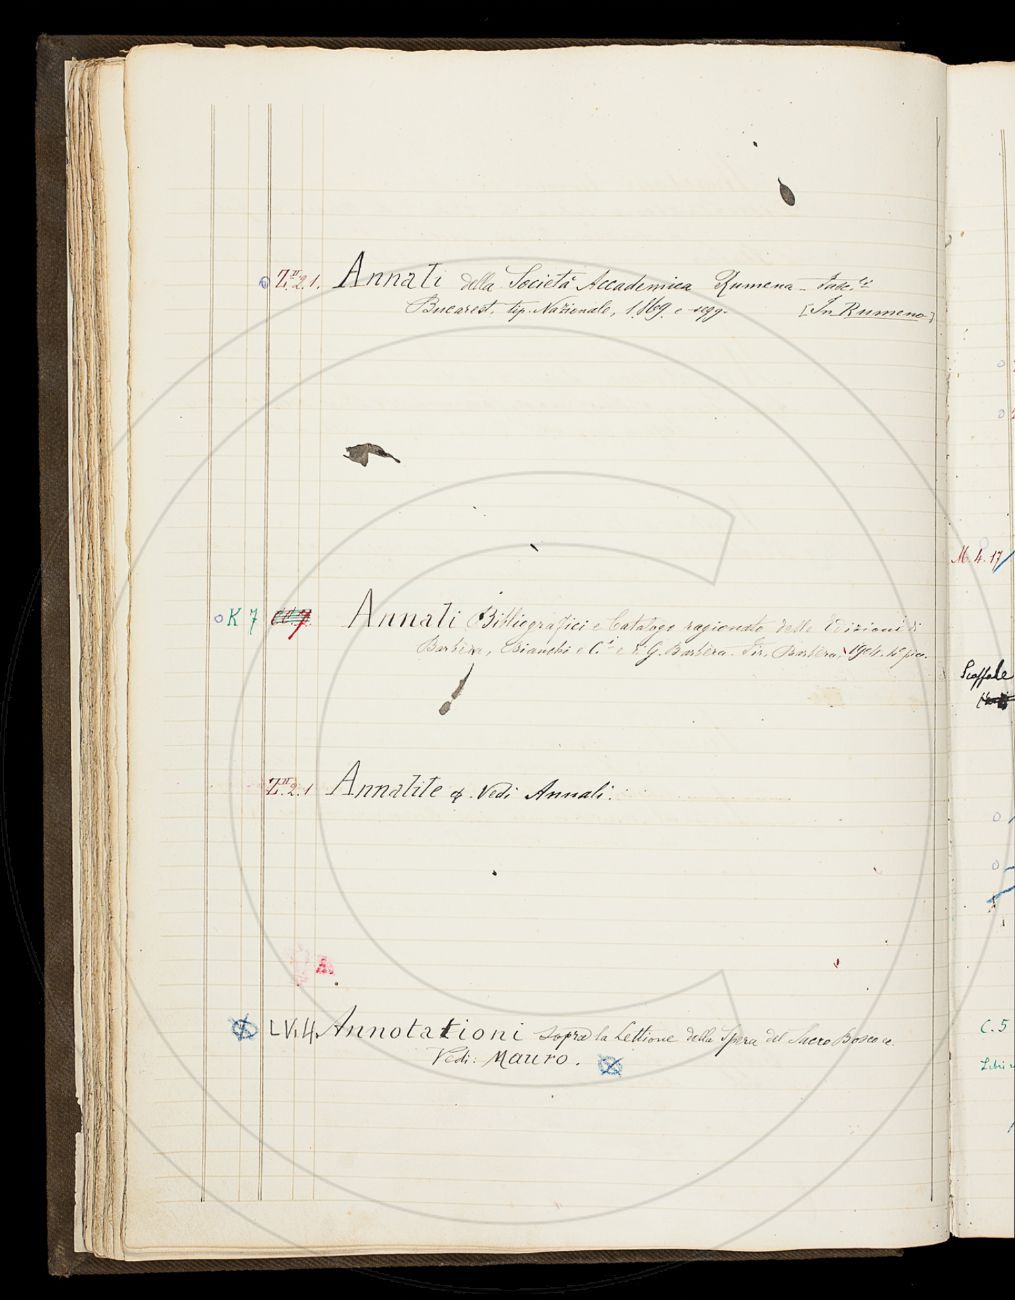 Z.II.2.1. Annali della Società Accademica Rumena - Fasc.
Bucarest, tip. Nazionale, 1869 e segg. [In Rumeno]
K 7 Annali Bibliografici e Catalogo ragionato delle Edizioni di
Barbèra, Bianchi e C.i e di G. Barbèra. Fir. Barbèra, 1904. 4º picc.
Z.II.2.1 Annalile &. Vedi Annali.
L.V.4. Annotationi sopra la Lettione della Spera del Sacro Bosco &.
Vedi: Mauro.
M. 4. 17
Scaffale
C. 5